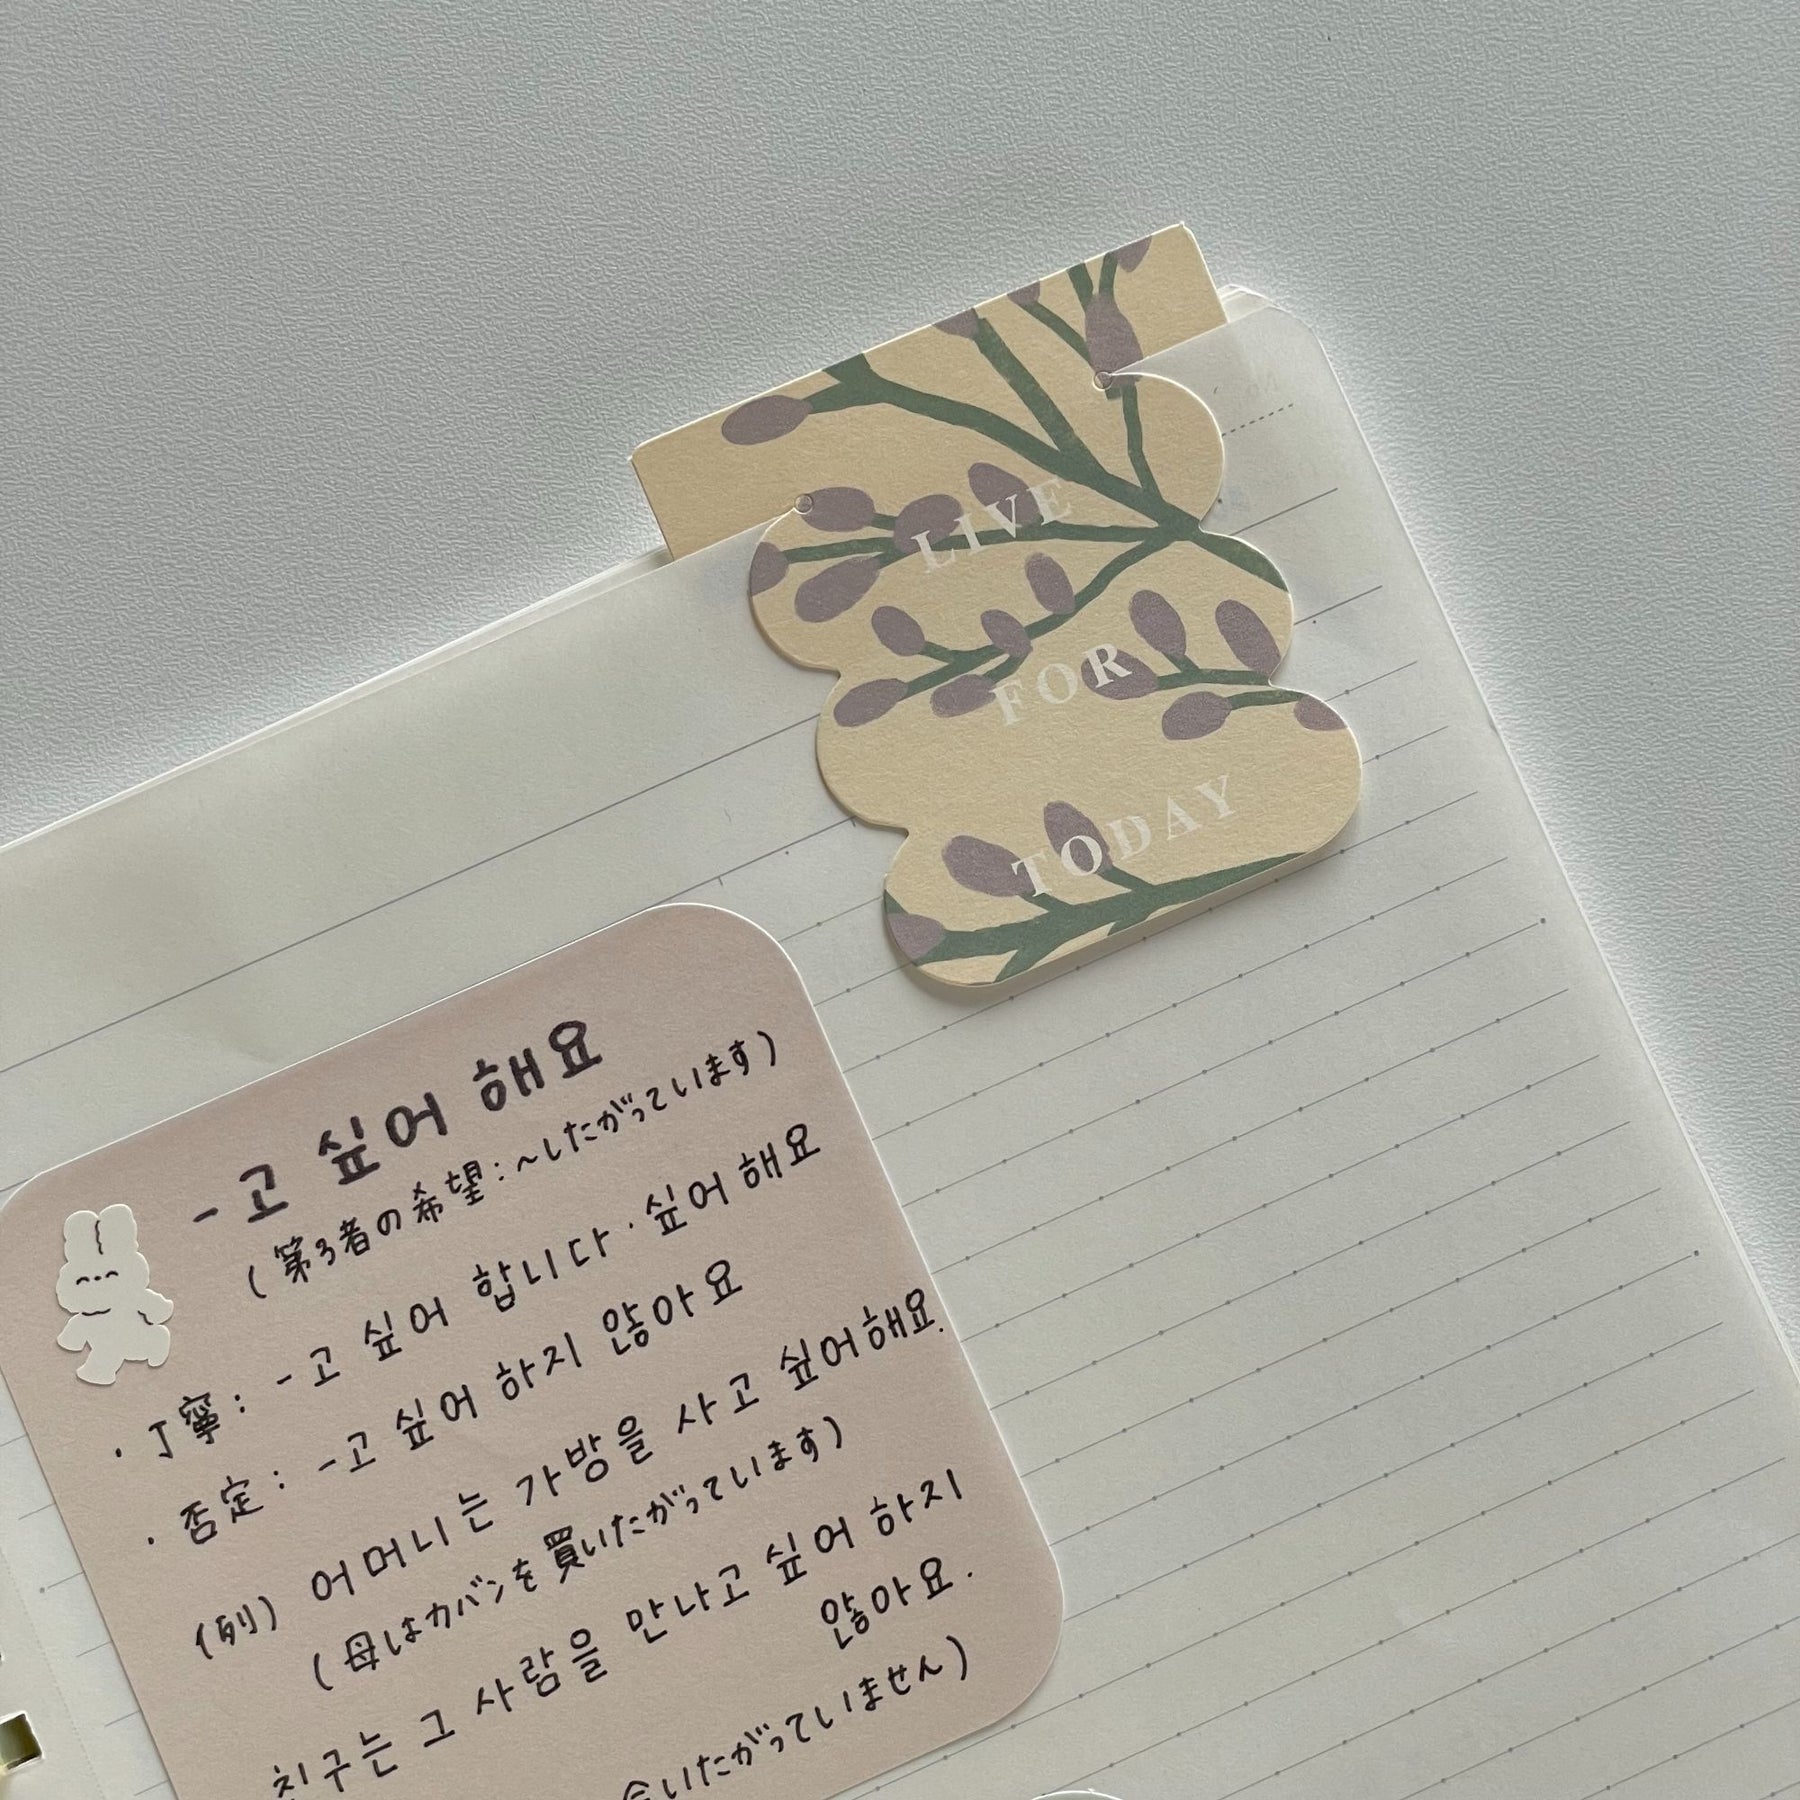 LIVE
FOR
TODAY
-고 싶어 해요
(第3者の希望:~したがっています)
・丁寧: -고 싶어 합니다・싶어 해요
・否定: -고 싶어 하지 않아요
(列) 어머니는 가방을 사고 싶어해요.
(母はカバンを買いたがっています)
친구는 그 사람을 만나고 싶어 하지
않아요.
会いたがっていません)